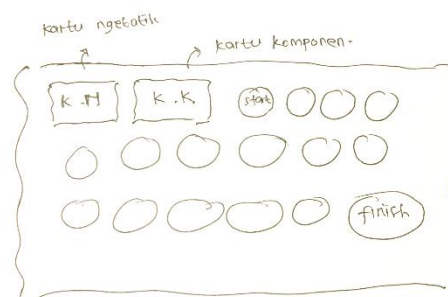 kartu ngebatik
kartu komponen.
K.N
K.K
start
finish